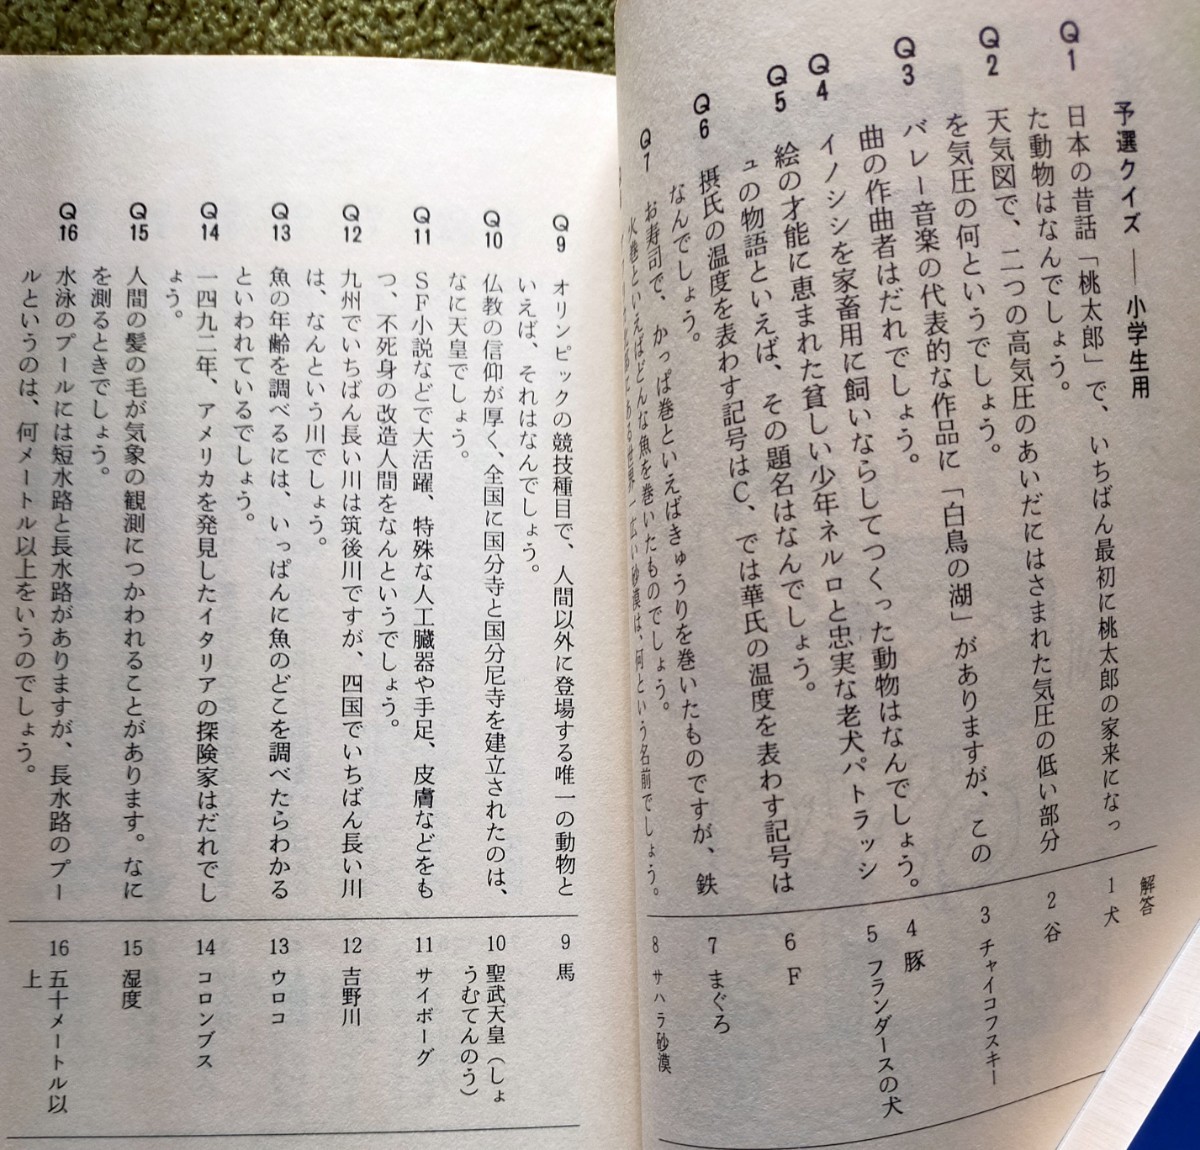 予選クイズ——小学生用
Q1 日本の昔話「桃太郎」で、いちばん最初に桃太郎の家来になっ
た動物はなんでしょう。
Q2 天気図で、二つの高気圧のあいだにはさまれた気圧の低い部分
を気圧の何というでしょう。
Q3 バレー音楽の代表的な作品に「白鳥の湖」がありますが、この
曲の作曲者はだれでしょう。
Q4 イノシシを家畜用に飼いならしてつくった動物はなんでしょう。
Q5 絵の才能に恵まれた貧しい少年ネルロと忠実な老犬パトラッシ
ュの物語といえば、その題名はなんでしょう。
Q6 摂氏の温度を表わす記号はC、では華氏の温度を表わす記号は
なんでしょう。
Q7 お寿司で、かっぱ巻といえばきゅうりを巻いたものですが、鉄
火巻といえばどんな魚を巻いたものでしょう。
にある世界一広い砂漠は、何という名前でしょう。
解答
1 犬
2 谷
3 チャイコフスキー
4 豚
5 フランダースの犬
6 F
7 まぐろ
8 サハラ砂漠
Q9 オリンピックの競技種目で、人間以外に登場する唯一の動物と
いえば、それはなんでしょう。
Q10 仏教の信仰が厚く、全国に国分寺と国分尼寺を建立されたのは、
なに天皇でしょう。
Q11 SF小説などで大活躍、特殊な人工臓器や手足、皮膚などをも
つ、不死身の改造人間をなんというでしょう。
Q12 九州でいちばん長い川は筑後川ですが、四国でいちばん長い川
は、なんという川でしょう。
Q13 魚の年齢を調べるには、いっぱんに魚のどこを調べたらわかる
といわれているでしょう。
Q14 一四九二年、アメリカを発見したイタリアの探険家はだれでし
ょう。
Q15 人間の髪の毛が気象の観測につかわれることがあります。なに
を測るときでしょう。
Q16 水泳のプールには短水路と長水路がありますが、長水路のプー
ルというのは、何メートル以上をいうのでしょう。
9 馬
10 聖武天皇（しょ
うむてんのう）
11 サイボーグ
12 吉野川
13 ウロコ
14 コロンブス
15 湿度
16 五十メートル以
上